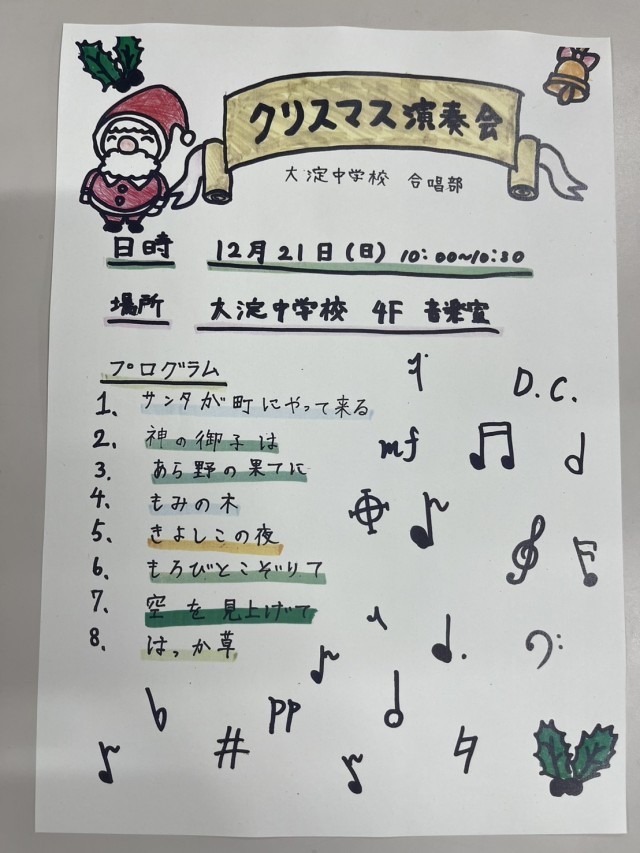 クリスマス演奏会
大淀中学校 合唱部
日時 12月21日(日) 10:00~10:30
場所 大淀中学校 4F 音楽室
プログラム
1. サンタが町にやって来る
2. 神の御子は
3. あら野の果てに
4. もみの木
5. きよしこの夜
6. もろびとこぞりて
7. 空を見上げて
8. はっか草
D.C.
mf
pp